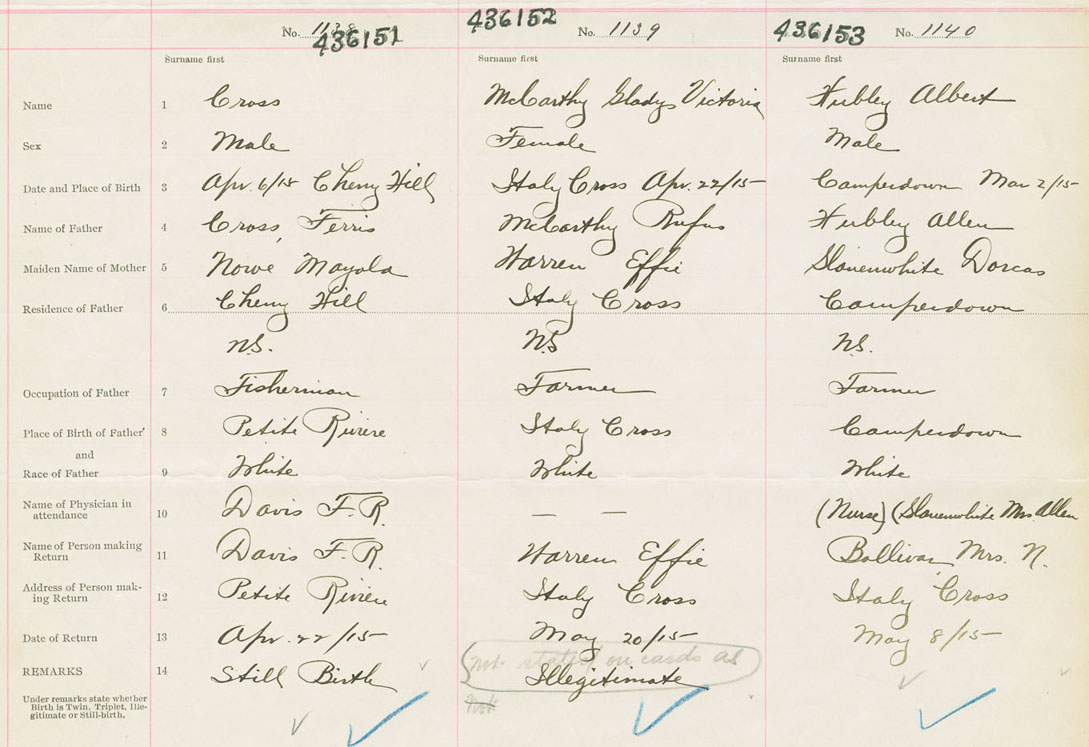 No. 1138 436151 436152 No. 1139 436153 No. 1140
Surname first Surname first Surname first
Name 1 Cross McCarthy Gladys Victoria Hubley Albert
Sex 2 Male Female Male
Date and Place of Birth 3 Apr. 6/15 Cherry Hill Italy Cross Apr. 22/15 Camperdown Mar 2/15
Name of Father 4 Cross, Ferris McCarthy Rufus Hubley Allen
Maiden Name of Mother 5 Nowe Mayola Warren Effie Slauenwhite Dorcas
Residence of Father 6 Cherry Hill Italy Cross Camperdown
N.S. N.S N.S.
Occupation of Father 7 Fisherman Farmer Farmer
Place of Birth of Father 8 Petite Riviere Italy Cross Camperdown
and
Race of Father 9 White White White
Name of Physician in
attendance 10 Davis F. R. — — (Nurse) (Slauenwhite Mrs Allen
Name of Person making
Return 11 Davis F. R. Warren Effie Bollivar Mrs. N.
Address of Person mak-
ing Return 12 Petite Riviere Italy Cross Italy Cross
Date of Return 13 Apr. 22/15 May 20/15 May 8/15
not stated on cards as
REMARKS 14 Still Birth Illegitimate
Under remarks state whether
Birth is Twin, Triplet, Ille-
gitimate or Still-birth.
Not